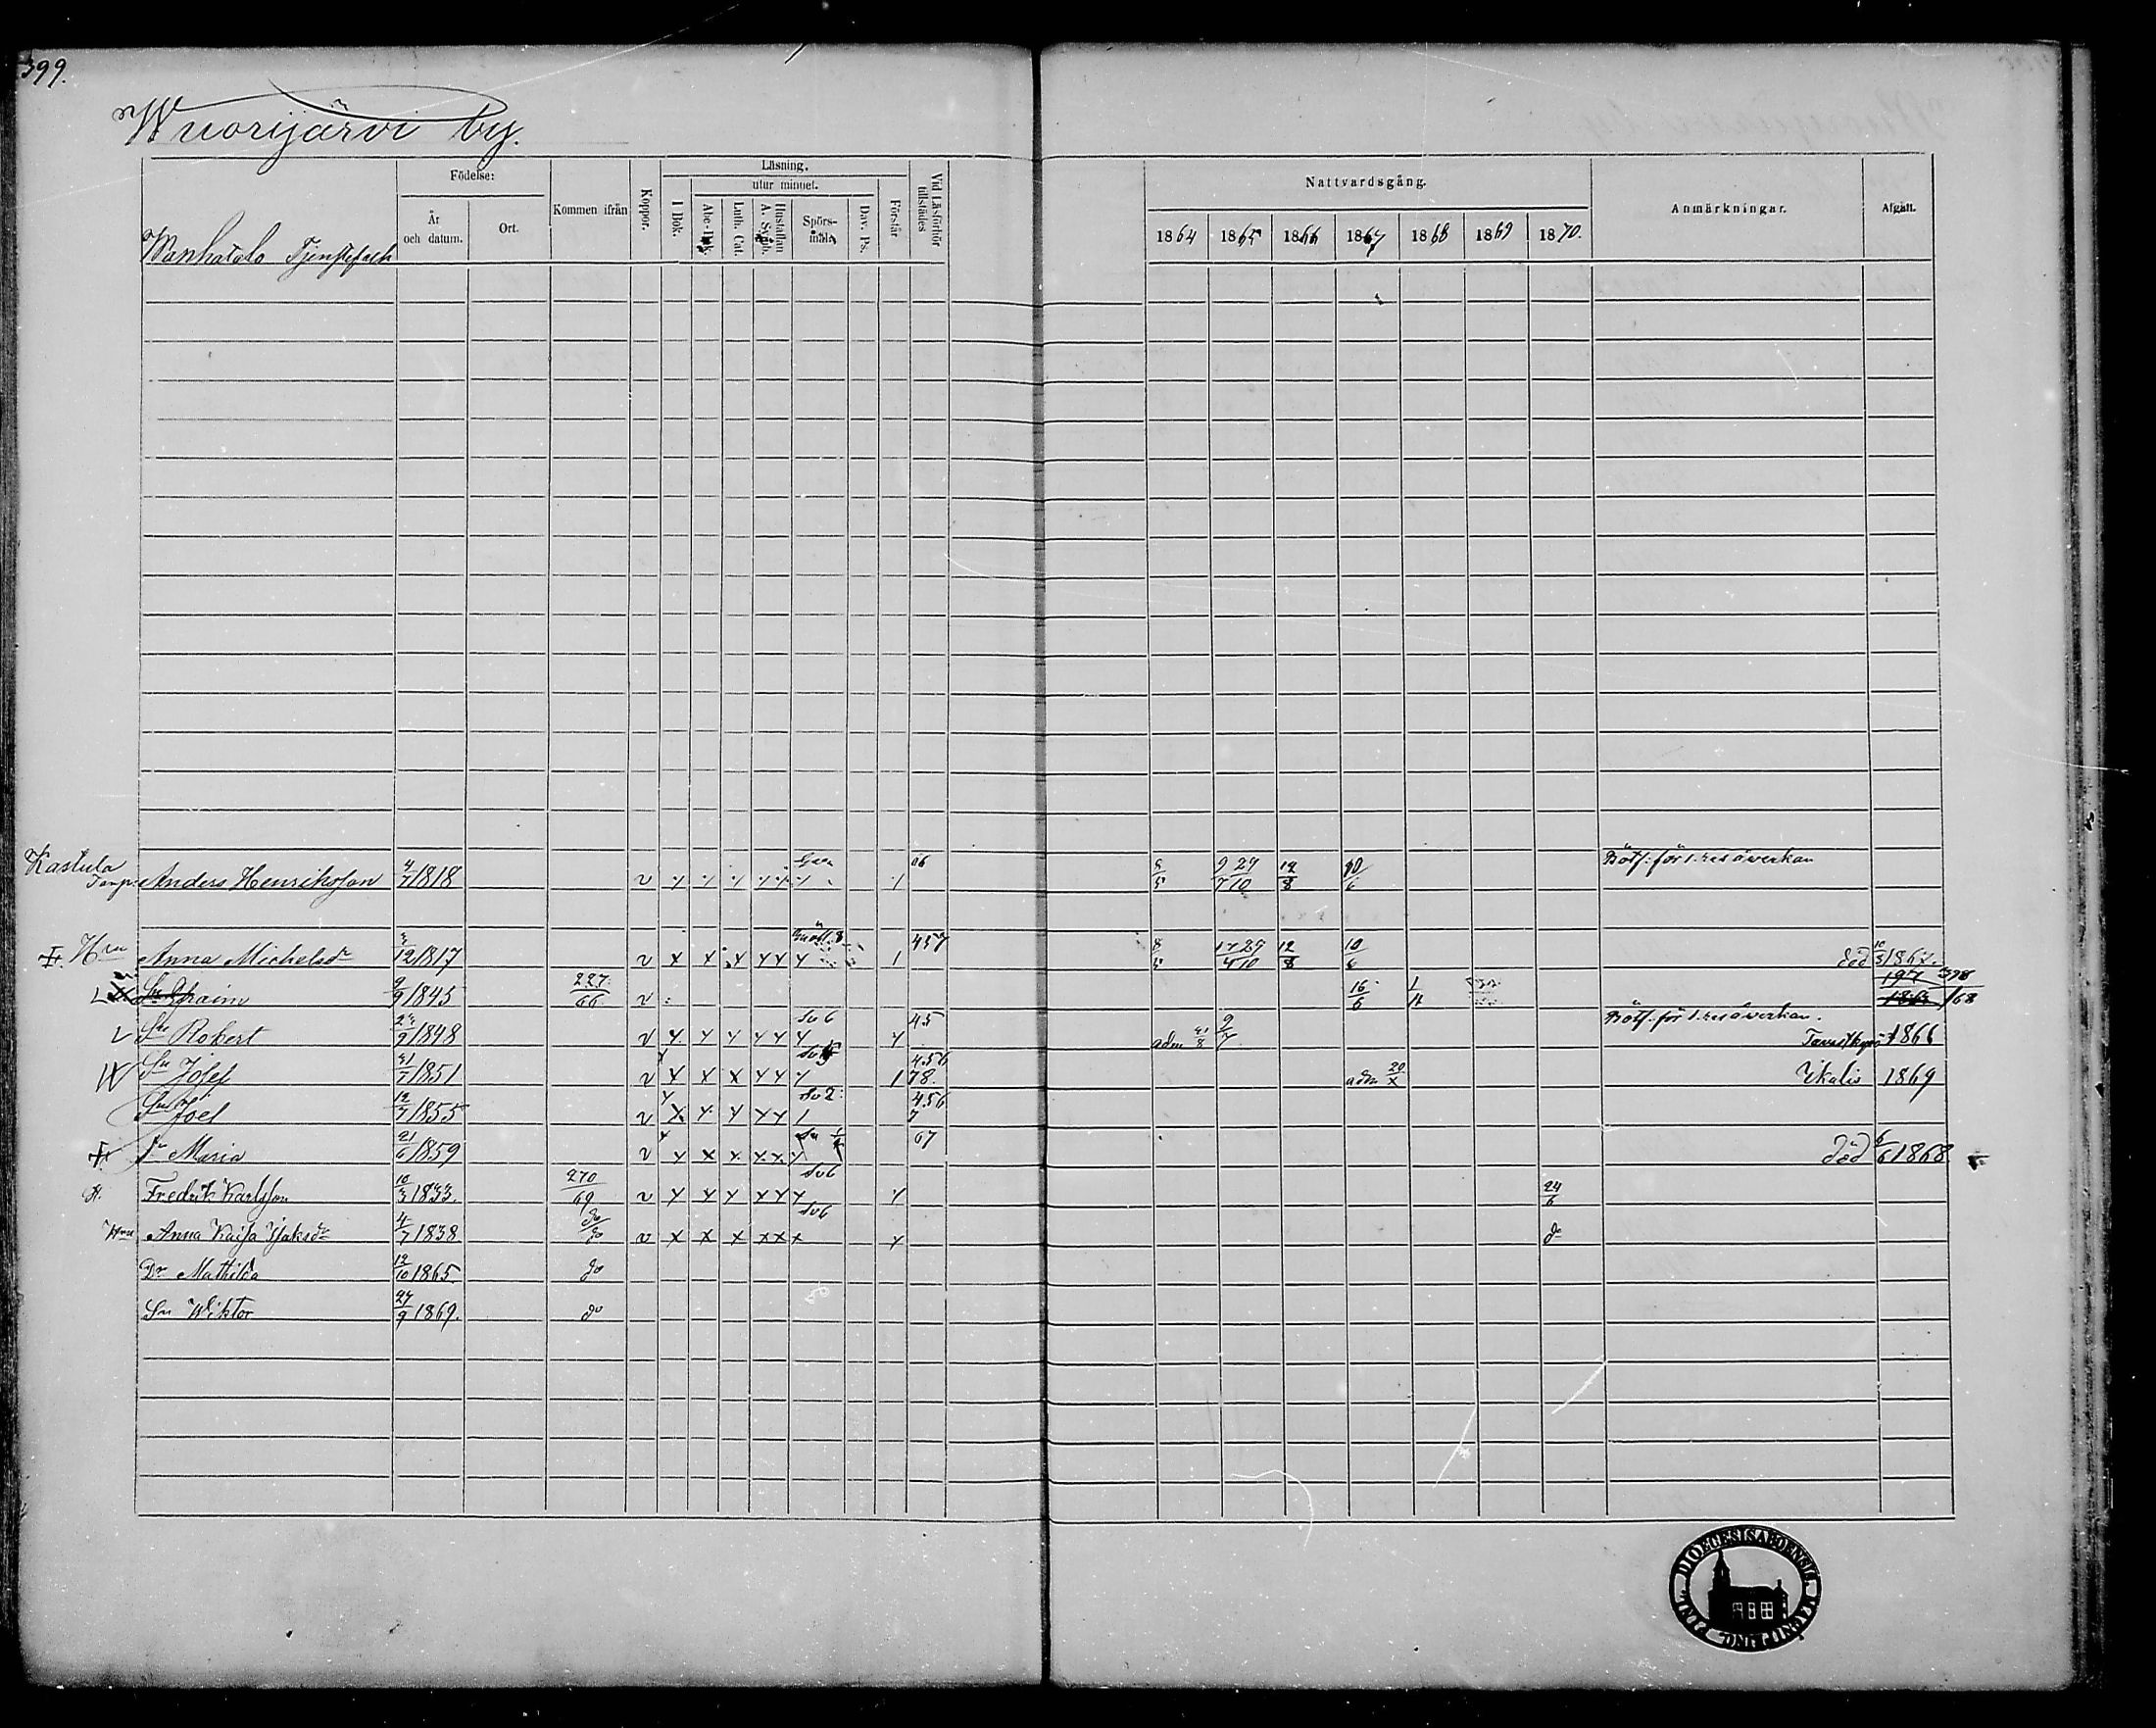 399.
Wuorijärvi by.
Wanhatalo Tjenstefolk
Födelse:
År och datum.
Ort.
Kommen ifrån
Koppor.
Läsning.
utur minnet.
I Bok.
Abc-Bok.
Luth. Cat.
Hustaflan A. Symb.
Spörs-måla
Dav. Ps.
Förstår
Vid Läsförhör tillstädes
Nattvardsgång.
1864 1865 1866 1867 1868 1869 1870.
Anmärkningar.
Afgått.
Kastula
Anders Henriksson 4/7 1818 v 8/5 9/7 29/10 12/8 10/6 Böt. för 1. res åverkan
Hru Anna Michelsdr 12 1817 v 457 8/5 17/4 29/10 12/8 10/6 död 10/5 1867.
Sn Efraim 9/9 1845 227/66 v 16/6 1/4 197 398 /68
Sn Robert 9 1848 v Sv 6 45 adm 8 9/7 Böt. för 1. res åverkan. Tavastkyro 1866
Sn Josef 31/7 1851 v 456 78. adm 20/x Ikalis 1869
Sn Joel 12/7 1855 v Sv 2: 456 7
Dr Maria 21/6 1859 v 67 död 6/6 1868
Fredrik Karlsson 10/3 1833. 270/69 v Sv 6 24/6
Hru Anna Kaisa Isaksdr 4/7 1838 do/do v Sv 6 do
Dr Mathilda 12/10 1865 do
Sn Wiktor 27/9 1869. do
DIOECESIS ABOENSIS MAGNI PRINC. FINL.